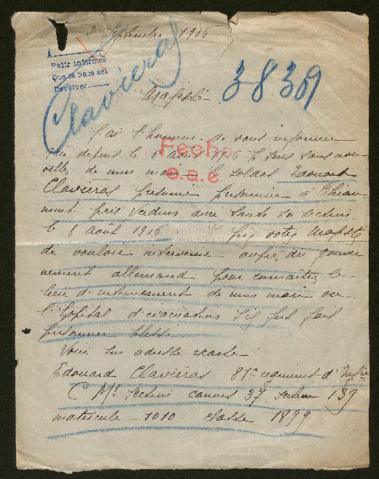 Septembre 1916
A
Pedir informes
Que se hace así
Devolver
Clavieras
3839
Majesté
J'ai l'honneur de vous informer
que depuis le 8 août 1916 je suis sans nou
velles de mon mari le soldat Edouard
Clavieras présumé prisonnier à Thiau
mont près Verdun
Fecho
le 8 août 1916 votre Majesté
de vouloir intervenir auprès du gouver
nement allemand pour connaître le
lieu d'internement de mon mari ou
l'hôpital d'évacuation s'il fut fait
prisonnier blessé
Voici son adresse exacte
Edouard Clavieras 81e regiment d'Infie
C Mr Secteur 139
matricule 1010 classe 1899